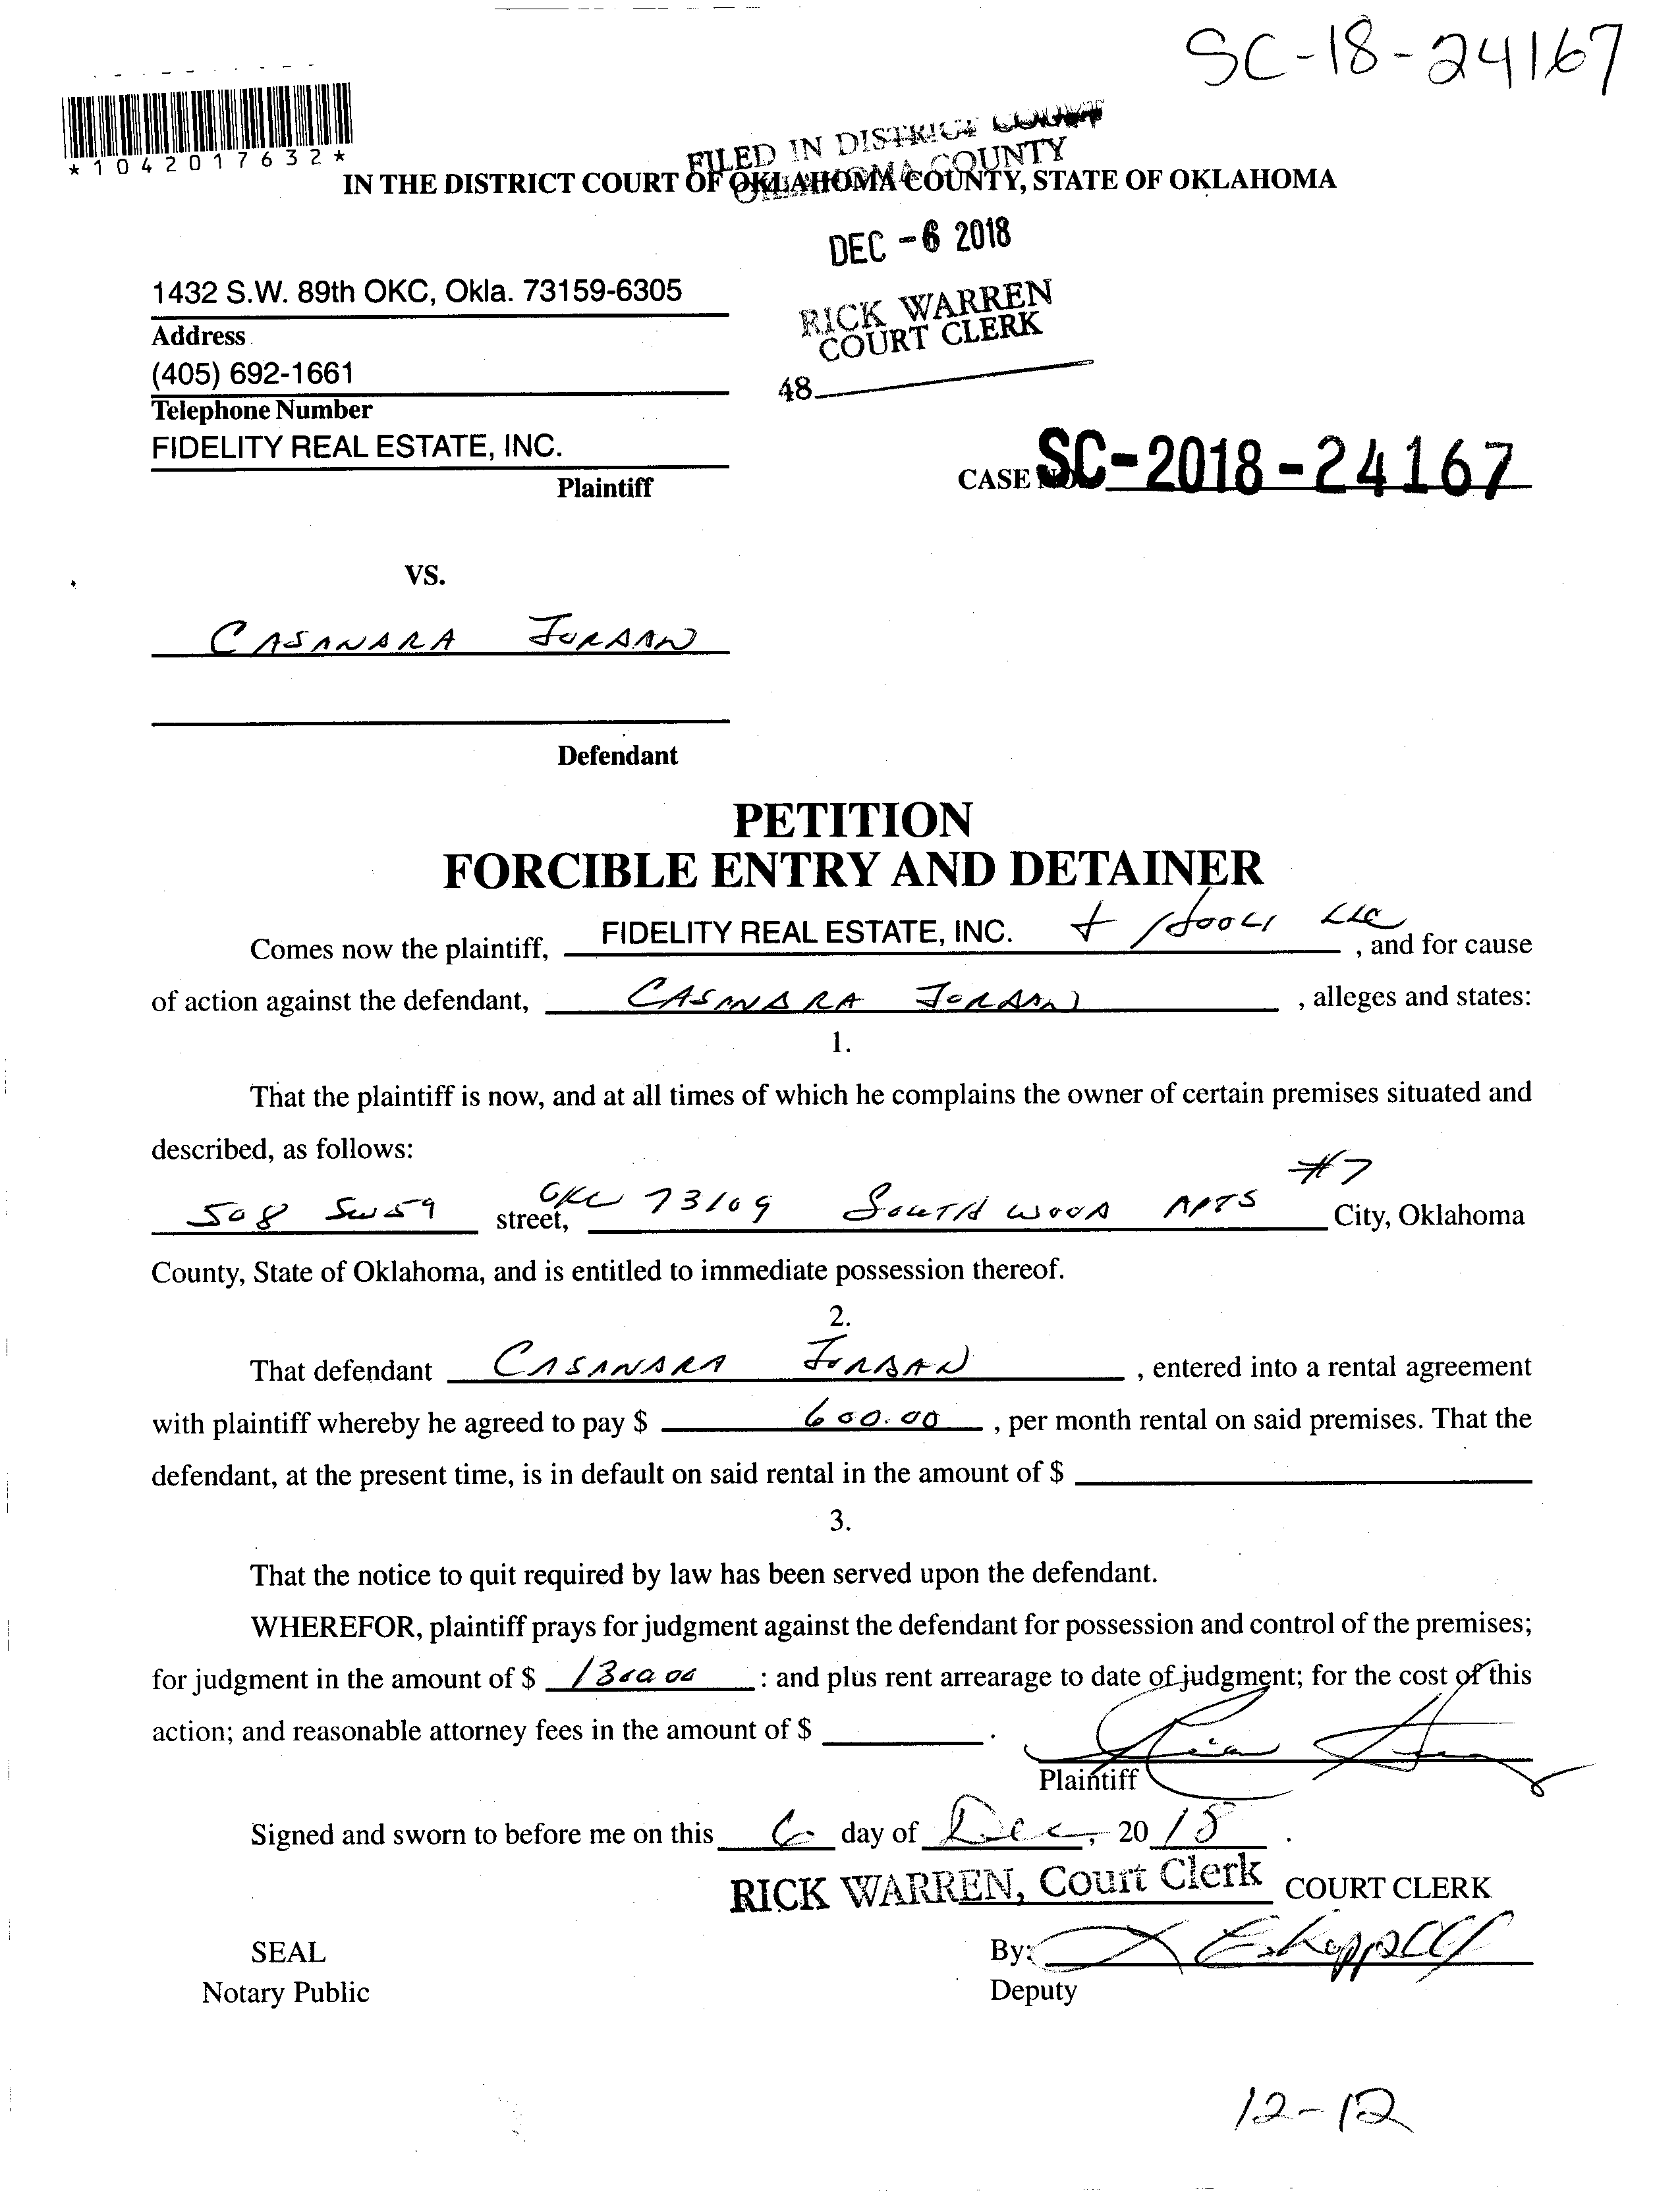 SC-18-24167
*1042017632*
FILED IN DISTRICT COURT
OKLAHOMA COUNTY
IN THE DISTRICT COURT OF OKLAHOMA COUNTY, STATE OF OKLAHOMA
DEC -6 2018
1432 S.W. 89th OKC, Okla. 73159-6305
RICK WARREN
Address
COURT CLERK
(405) 692-1661
48
Telephone Number
FIDELITY REAL ESTATE, INC.
CASE NO. SC-2018-24167
Plaintiff
VS.
CASANARA JORDAN
Defendant
PETITION
FORCIBLE ENTRY AND DETAINER
Comes now the plaintiff, FIDELITY REAL ESTATE, INC. + LLC, and for cause
of action against the defendant, CASANARA JORDAN, alleges and states:
1.
That the plaintiff is now, and at all times of which he complains the owner of certain premises situated and
described, as follows:
#7
508 SW 59 street, OKC 73109 SOUTH WOOD APTS City, Oklahoma
County, State of Oklahoma, and is entitled to immediate possession thereof.
2.
That defendant CASANARA JORDAN, entered into a rental agreement
with plaintiff whereby he agreed to pay $ 600.00, per month rental on said premises. That the
defendant, at the present time, is in default on said rental in the amount of $
3.
That the notice to quit required by law has been served upon the defendant.
WHEREFOR, plaintiff prays for judgment against the defendant for possession and control of the premises;
for judgment in the amount of $ 1300.00 : and plus rent arrearage to date of judgment; for the cost of this
action; and reasonable attorney fees in the amount of $ .
Plaintiff
Signed and sworn to before me on this 6 day of Dec, 20 18.
RICK WARREN, Court Clerk COURT CLERK
SEAL
By:
Notary Public
Deputy
12-12